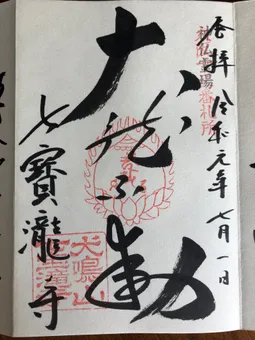 奉拝 令和元年 七月一日
大龍不動
七寳瀧寺
犬鳴山